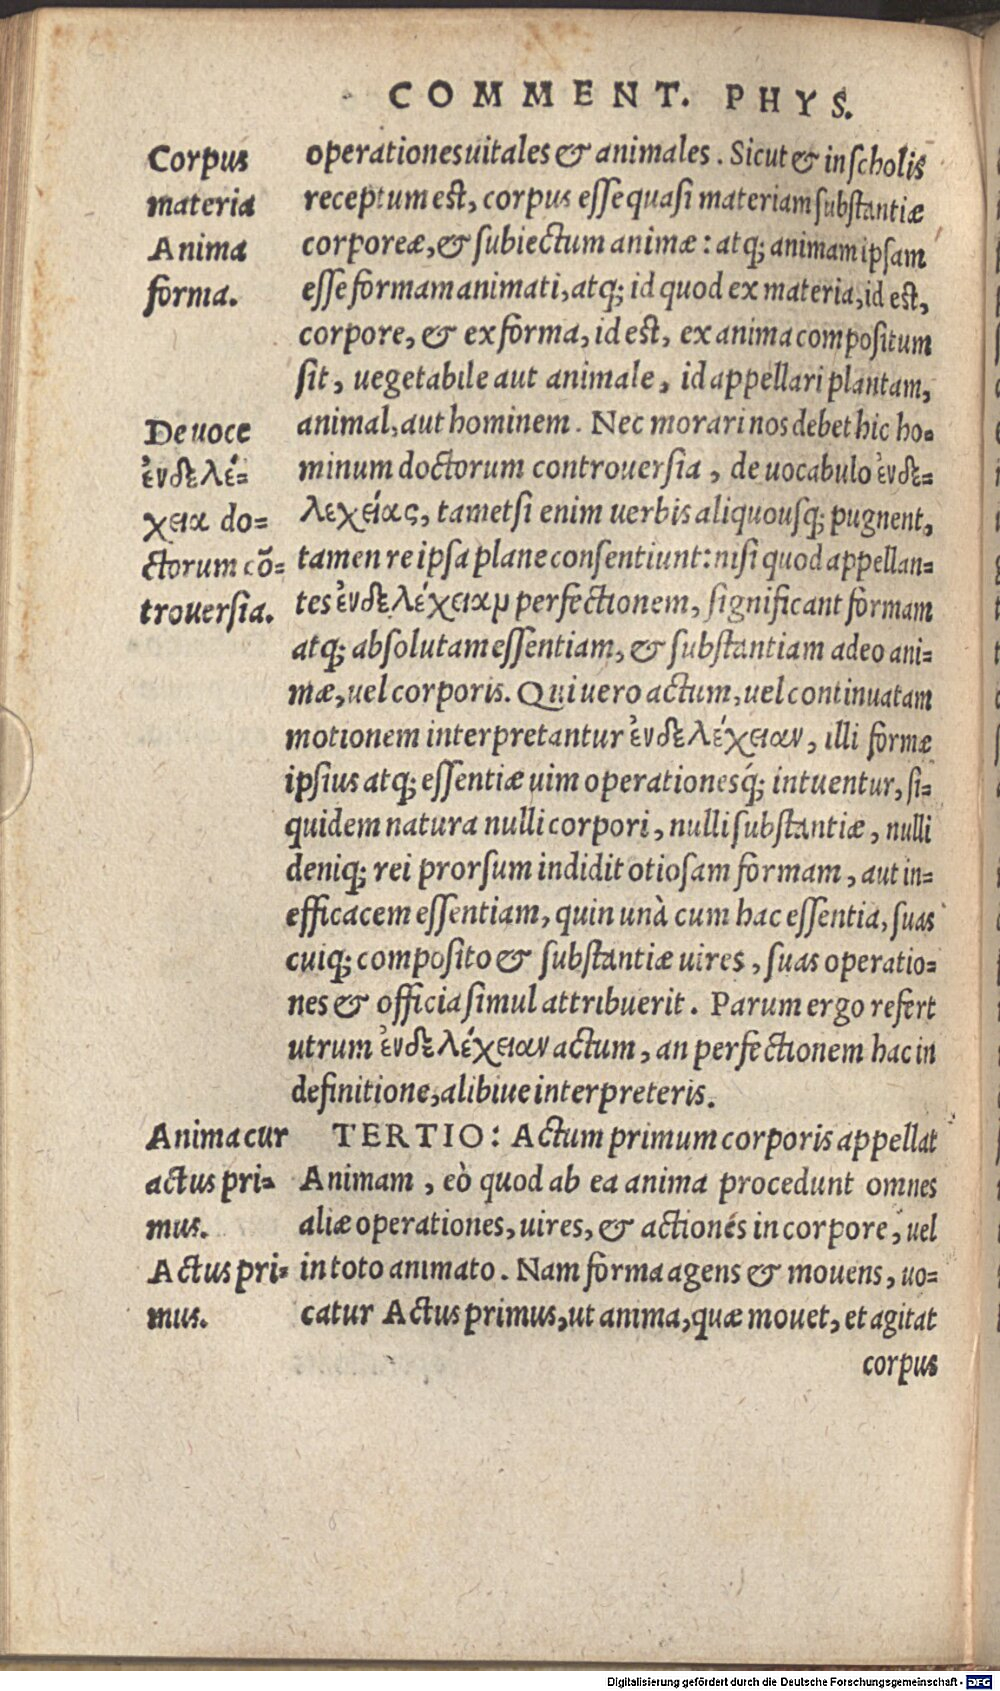 COMMENT. PHYS.
Corpus
materia
Anima
forma.
operationes uitales & animales. Sicut & in scholis
receptum est, corpus esse quasi materiam substantiæ
corporeæ, & subiectum animæ: atq; animam ipsam
esse formam animati, atq; id quod ex materia, id est,
corpore, & ex forma, id est, ex anima compositum
sit, uegetabile aut animale, id appellari plantam,
De uoce
ἐνδελέ-
χεια do-
ctorum cō-
trouersia.
animal, aut hominem. Nec morari nos debet hic ho-
minum doctorum controuersia, de uocabulo ἐνδε-
λεχείας, tametsi enim uerbis aliquousq; pugnent,
tamen re ipsa plane consentiunt: nisi quod appellan-
tes ἐνδελέχειαμ perfectionem, significant formam
atq; absolutam essentiam, & substantiam adeo ani-
mæ, uel corporis. Qui uero actum, uel continuatam
motionem interpretantur ἐνδελέχειαν, illi formæ
ipsius atq; essentiæ uim operationesq́; intuentur, si-
quidem natura nulli corpori, nulli substantiæ, nulli
deniq; rei prorsum indidit otiosam formam, aut in-
efficacem essentiam, quin unà cum hac essentia, suas
cuiq; composito & substantiæ uires, suas operatio-
nes & officia simul attribuerit. Parum ergo refert
utrum ἐνδελέχειαν actum, an perfectionem hac in
definitione, alibiue interpreteris.
Anima cur
actus pri-
mus.
Actus pri-
mus.
TERTIO: Actum primum corporis appellat
Animam, eò quod ab ea anima procedunt omnes
aliæ operationes, uires, & actiones in corpore, uel
in toto animato. Nam forma agens & mouens, uo-
catur Actus primus, ut anima, quæ mouet, et agitat
corpus
Digitalisierung gefördert durch die Deutsche Forschungsgemeinschaft - DFG